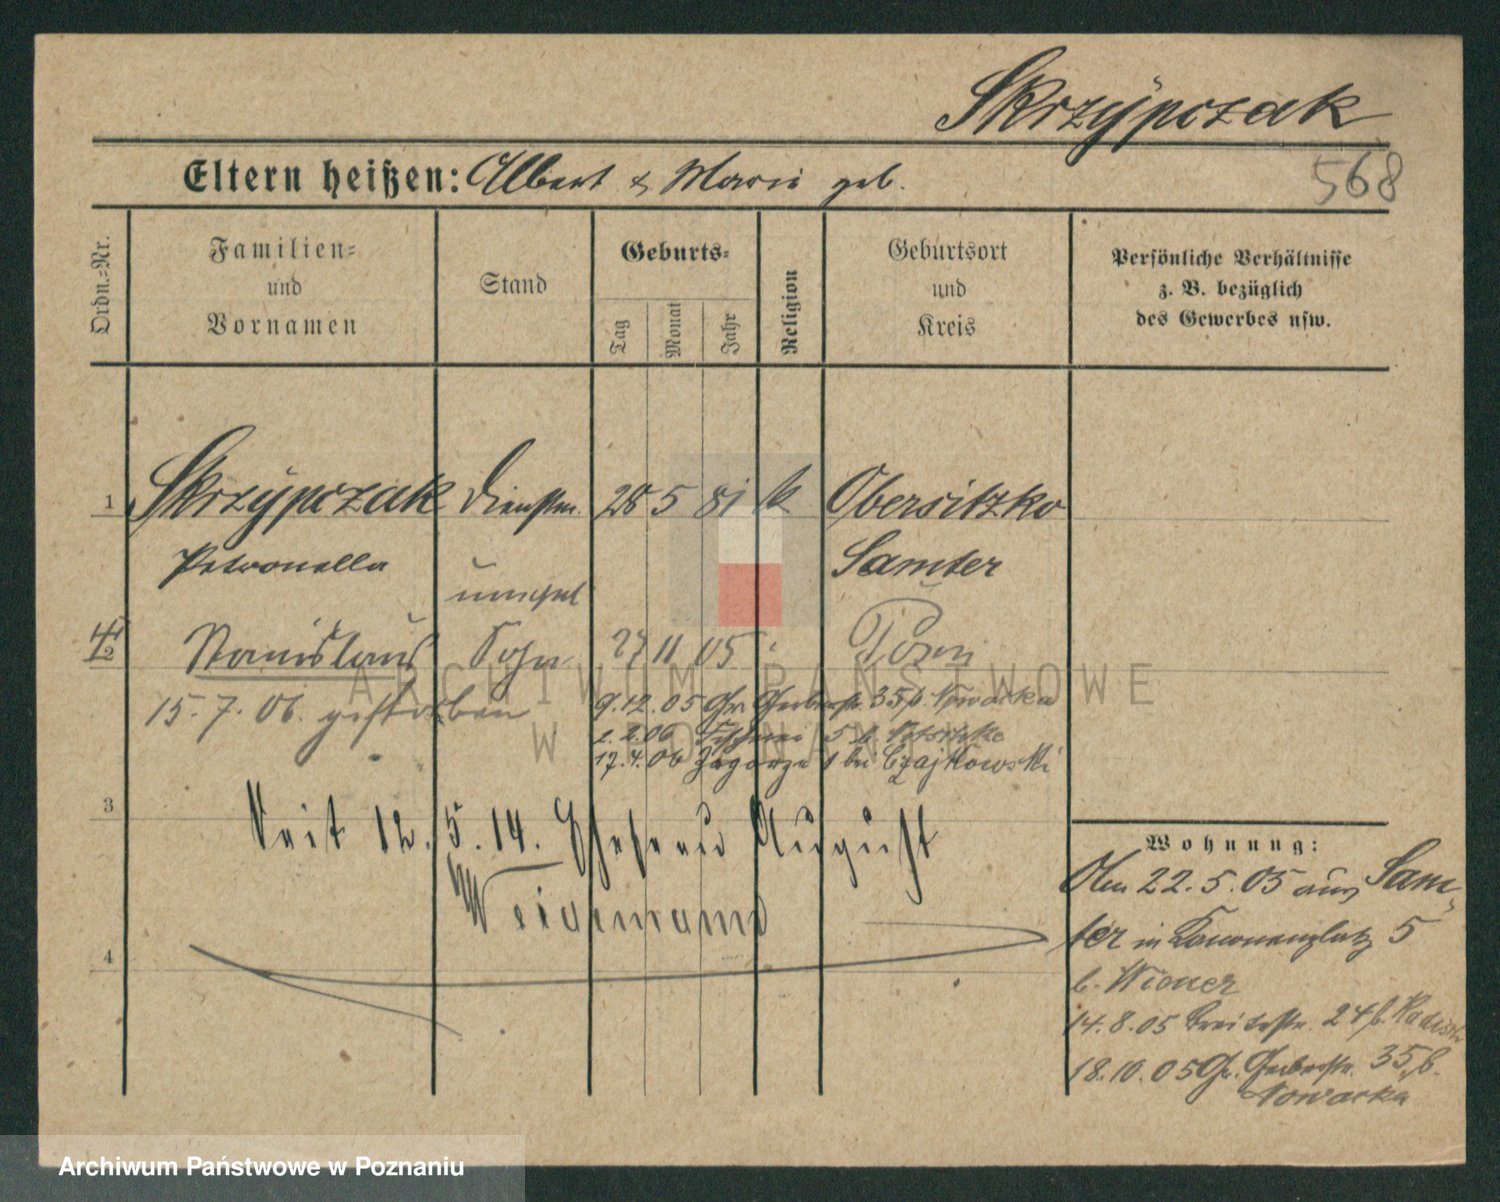 Skrzypczak
568
Eltern heißen: Albert & Marie geb.
Ordn.-Nr.
Familien-
und
Vornamen
Stand
Geburts-
Tag
Monat
Jahr
Religion
Geburtsort
und
Kreis
Persönliche Verhältnisse
z. B. bezüglich
des Gewerbes usw.
1 Skrzypczak Dienstm. 28 5 81 k Obersitzko
Petronella Samter
unehel
2 Stanislaus Sohn 27 11 05 Posen
15.7.06. gestorben
9.12.05 Gr. Gerberstr. 35 b. Nowacka
2.2.06 Fischerei 5 b.
17.4.06 Zagorze 1 bei Czajkowski
3
Seit 12.5.14. Ehefrau August
Weidemann
4
Wohnung:
Am 22.5.05 aus Sam-
ter in Kanonenplatz 5
b. Wiener
14.8.05 Breitestr. 24 b.
18.10.05 Gr. Gerberstr. 35, b.
Nowacka
ARCHIWUM PAŃSTWOWE
W POZNANIU
Archiwum Państwowe w Poznaniu